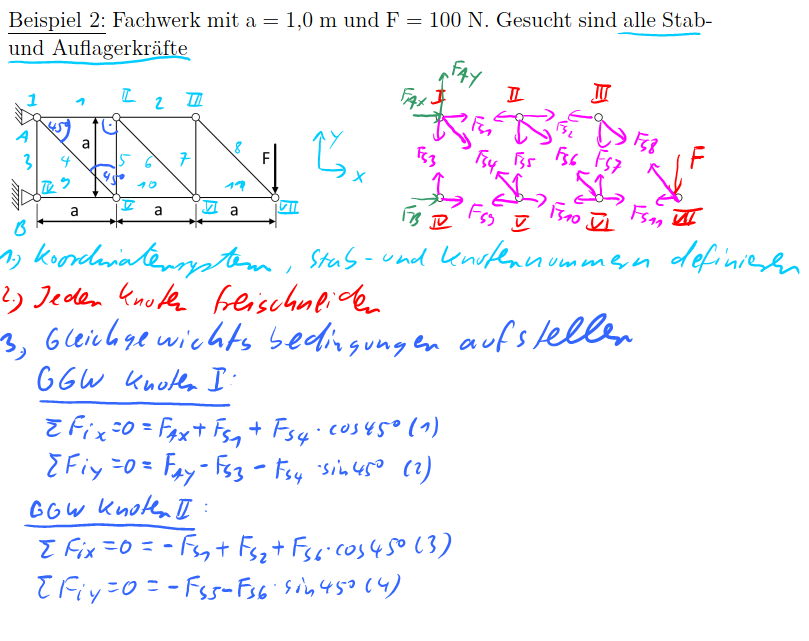 Beispiel 2: Fachwerk mit a = 1,0 m und F = 100 N. Gesucht sind alle Stab-
und Auflagerkräfte
I 1 II 2 III
A 45° a 5 6 7 8 F
3 4 45°
IV 9 10 11 VII
V VI
B a a a
y
x
FAy
FAx I II III
FS1 FS2 FS8
FS3 FS4 FS5 FS6 FS7 F
FB IV FS9 V FS10 VI FS11 VII
1.) Koordinatensystem, Stab- und Knotennummern definieren
2.) Jeden Knoten freischneiden
3.) Gleichgewichtsbedingungen aufstellen
GGW Knoten I:
ΣFix=0 = FAx + FS1 + FS4 · cos45° (1)
ΣFiy=0 = FAy - FS3 - FS4 · sin45° (2)
GGW Knoten II:
ΣFix=0 = -FS1 + FS2 + FS6 · cos45° (3)
ΣFiy=0 = -FS5 - FS6 · sin45° (4)